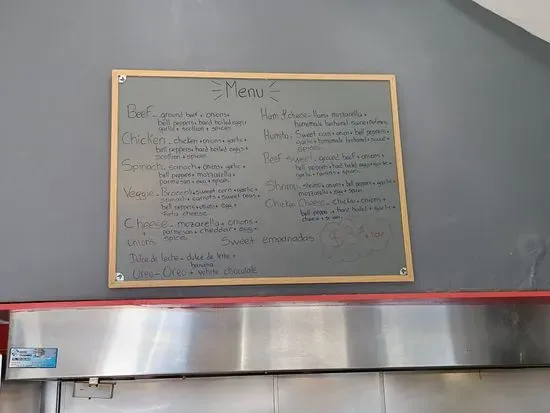 Menu
Beef - ground beef + onions +
bell peppers + hard boiled eggs +
garlic + scallion + spices
Chicken - chicken + onions + garlic +
bell peppers + hard boiled eggs +
scallion + spices
Spinach - spinach + onions + garlic +
bell peppers + mozzarella +
parmesan + egg + spices
Veggie - Broccoli + sweet corn + garlic +
spinach + carrots + sweet peas +
bell peppers + onions + egg +
feta cheese
Cheese - mozzarella + onions +
+ parmesan + cheddar + egg +
onions spices
Ham & cheese - Ham + mozzarella +
homemade bechamel sauce + nutmeg
Humita - Sweet corn + onion + bell peppers +
garlic + homemade bechamel sauce +
spices
Beef sweet - ground beef + onions +
bell peppers + hard boiled eggs +
garlic + raisins + spices
Shrimp - shrimp + onions + bell peppers + garlic +
mozzarella + egg + spices
Chicken Cheese - Chicken + onions +
bell peppers + hard boiled + garlic +
cheese + spices
Sweet empanadas
Dulce de leche - dulce de leche +
banana
Oreo - Oreo + white chocolate
$ + tax